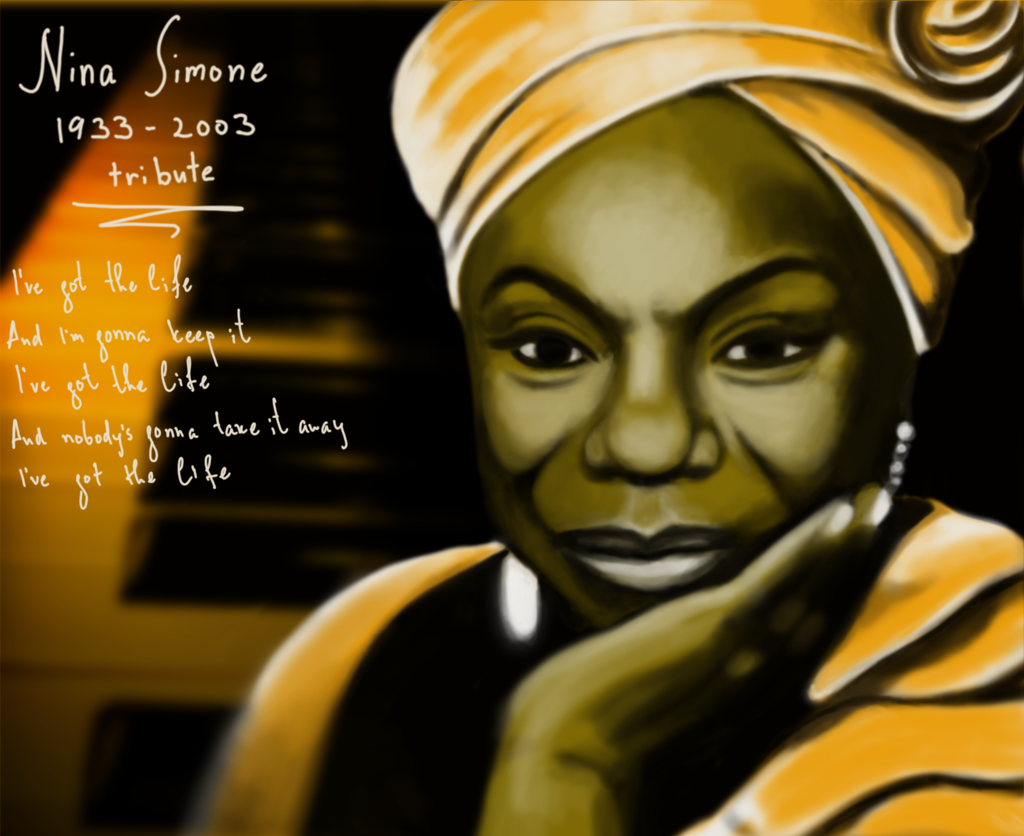 Nina Simone
1933 - 2003
tribute
I've got the life
And I'm gonna keep it
I've got the life
And nobody's gonna take it away
I've got the life